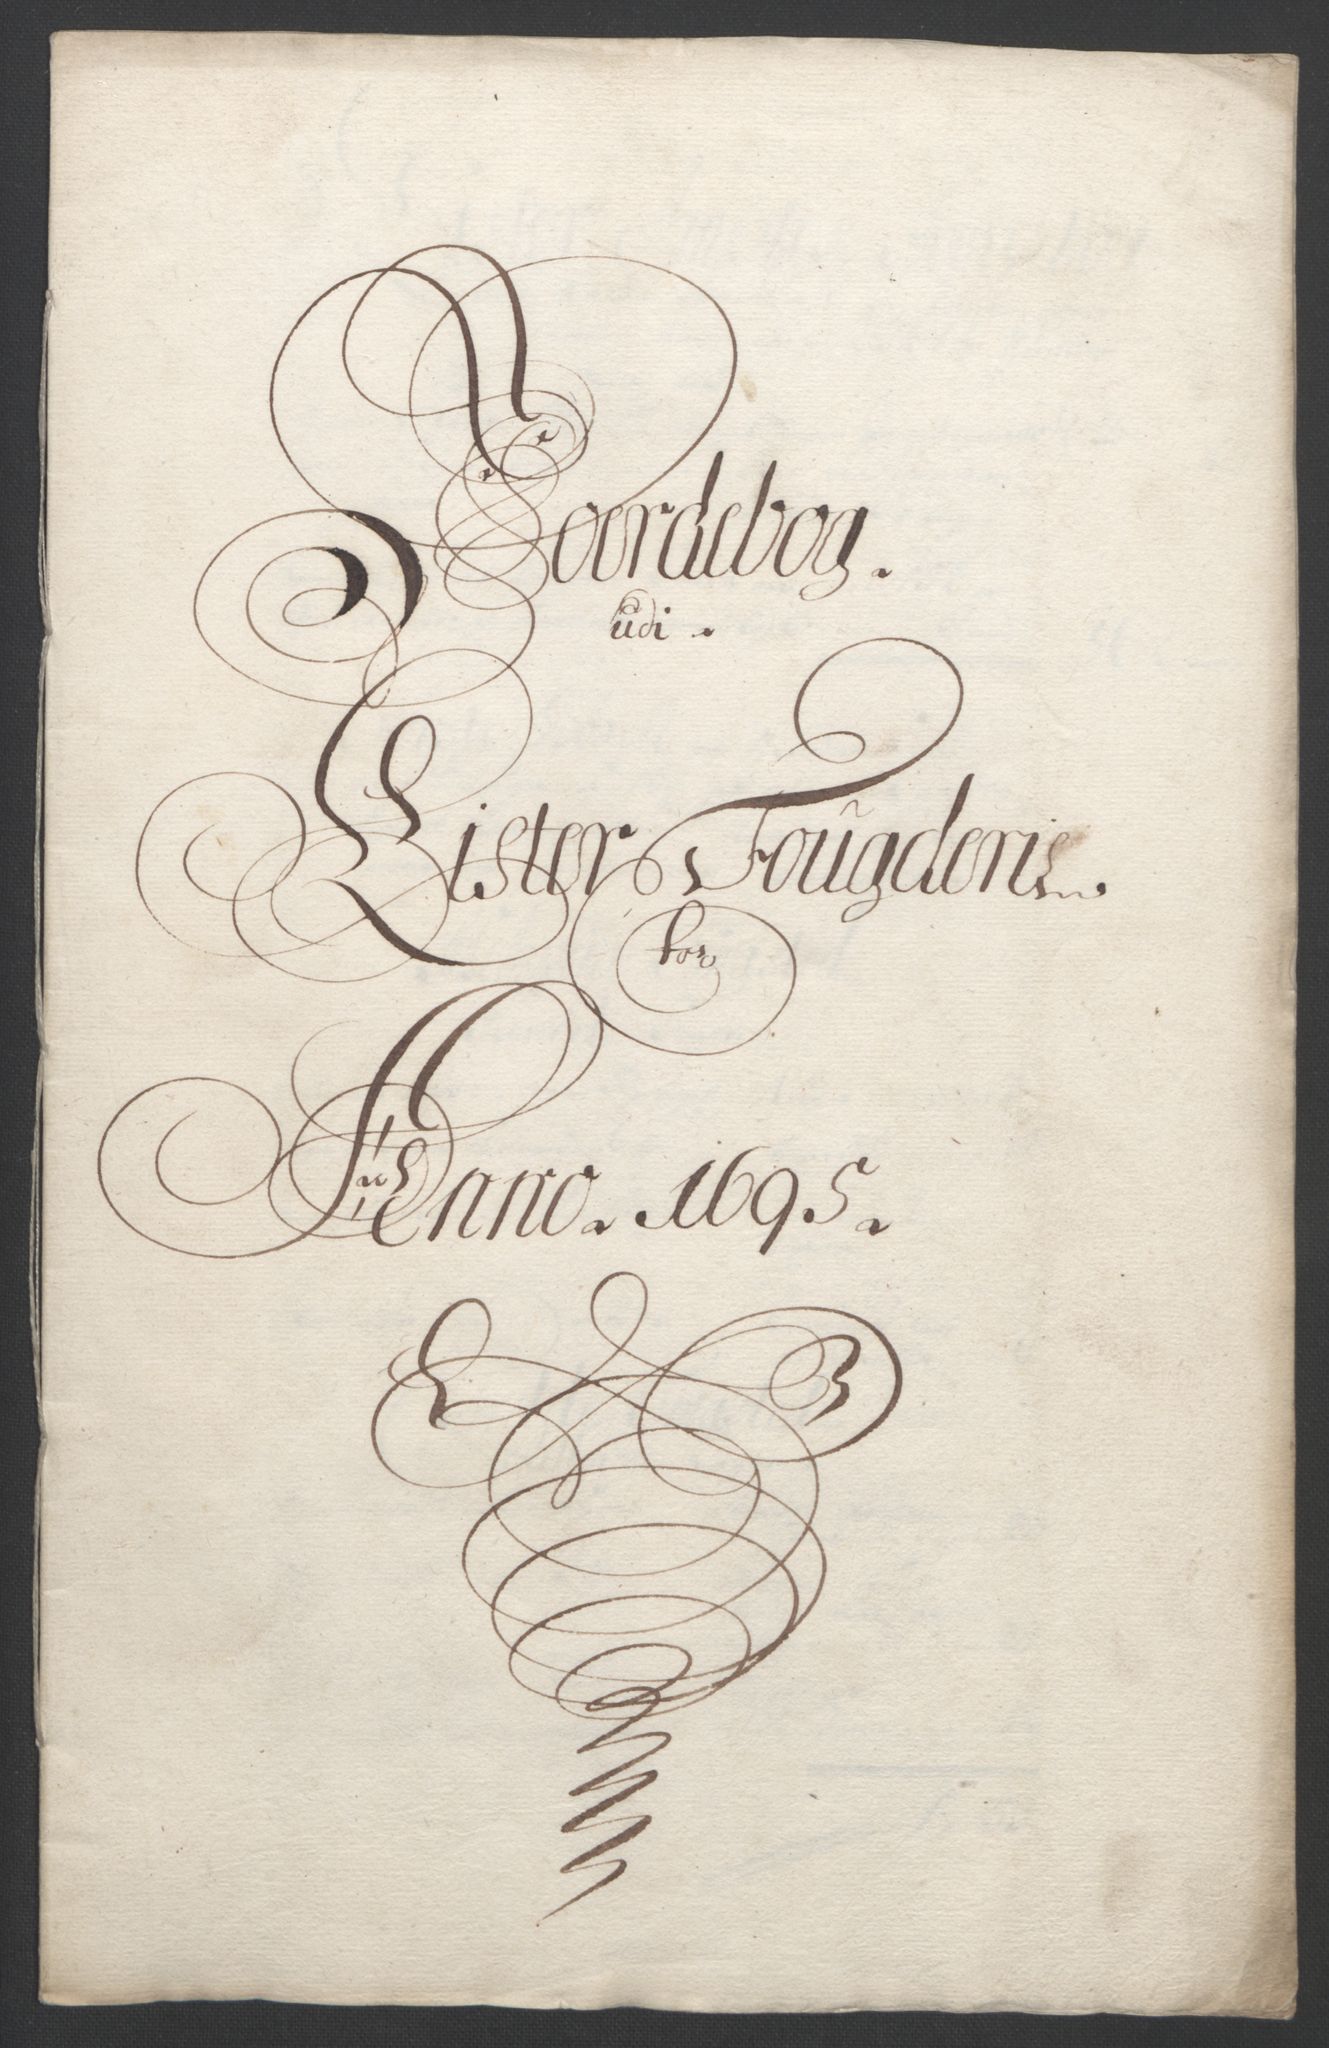 Joerdebog.
udi.
Lister Fougderie.
for
Anno. 1695.